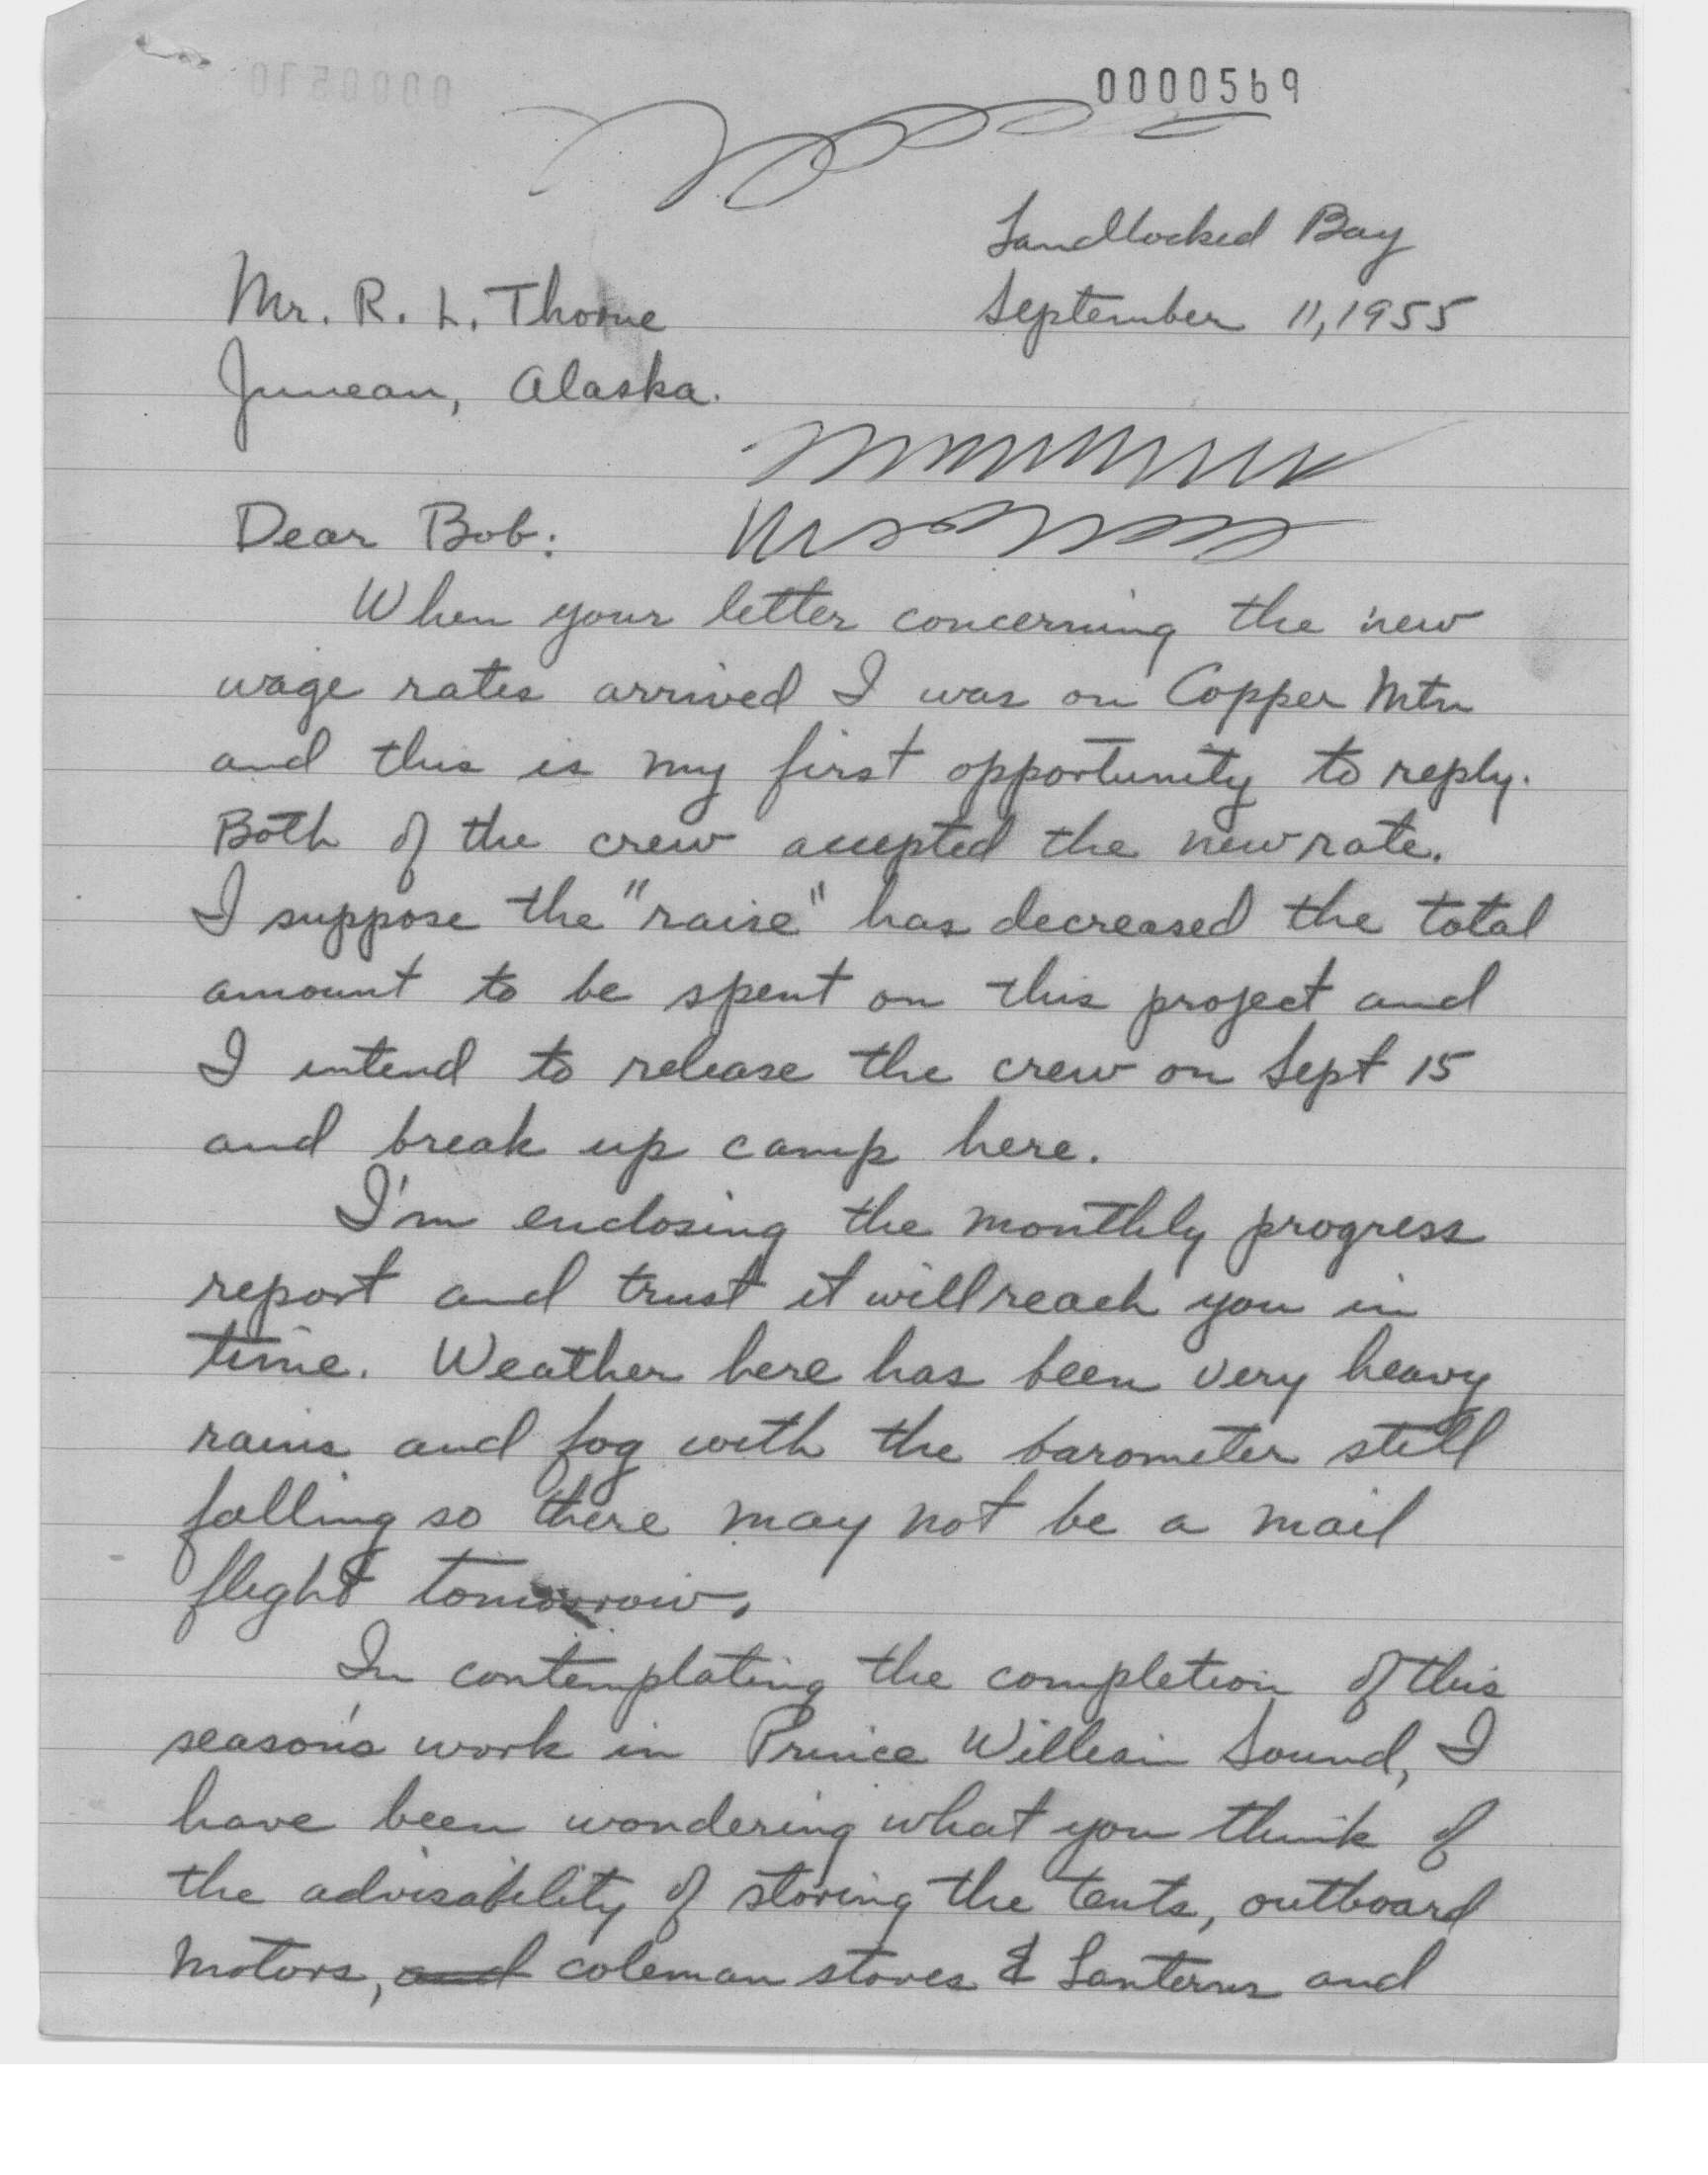 0000569
Landlocked Bay
Mr. R. L. Thorne
September 11, 1955
Juneau, Alaska.
Dear Bob:
When your letter concerning the new
wage rates arrived I was on Copper Mtn
and this is my first opportunity to reply.
Both of the crew accepted the new rate.
I suppose the "raise" has decreased the total
amount to be spent on this project and
I intend to release the crew on Sept 15
and break up camp here.
I'm enclosing the monthly progress
report and trust it will reach you in
time. Weather here has been very heavy
rains and fog with the barometer still
falling so there may not be a mail
flight tomorrow.
In contemplating the completion of this
season's work in Prince William Sound, I
have been wondering what you think of
the advisability of storing the tents, outboard
motors, and coleman stoves & Lanterns and